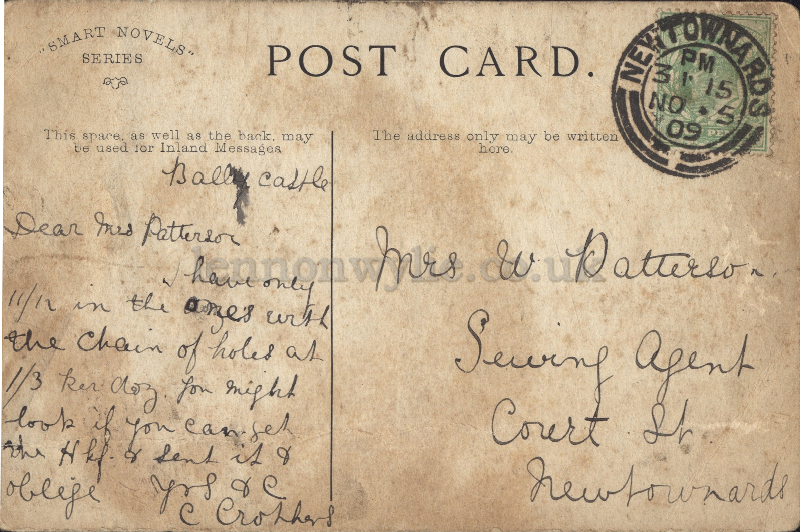 "SMART NOVELS"
SERIES
POST CARD.
NEWTOWNARDS
PM
5 15
NO 5
09
This space, as well as the back, may
be used for Inland Messages
The address only may be written
here.
Bally castle
Dear Mrs Patterson
I have only
11/12 in the ones with
the chain of holes at
1/3 per doz. you might
look if you can get
the Hkf. & sent it &
oblige Yrs &C
C Crothers
Mrs W Patterson.
Sewing Agent
Court St.
Newtownards
lennonwylie.co.uk